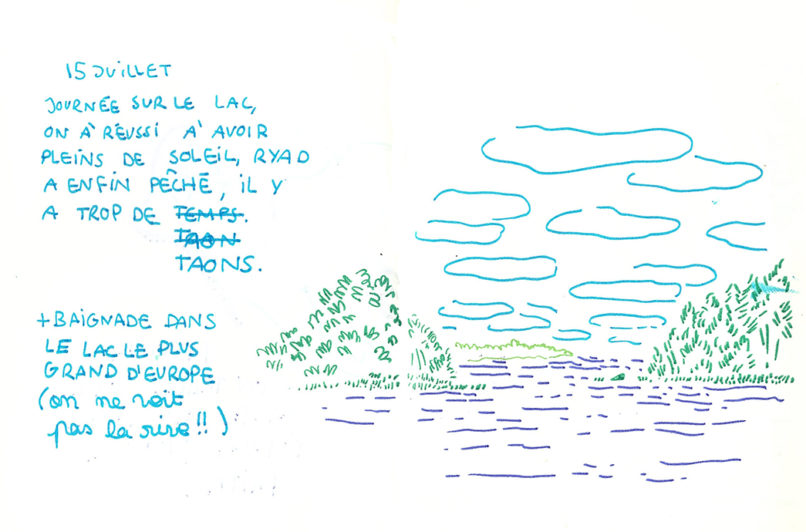 15 JUILLET
JOURNÉE SUR LE LAC,
ON À RÉUSSI À AVOIR
PLEINS DE SOLEIL, RYAD
A ENFIN PÊCHÉ, IL Y
A TROP DE TEMPS.
TAON
TAONS.
+ BAIGNADE DANS
LE LAC LE PLUS
GRAND D'EUROPE
(on ne voit
pas la rive !! )